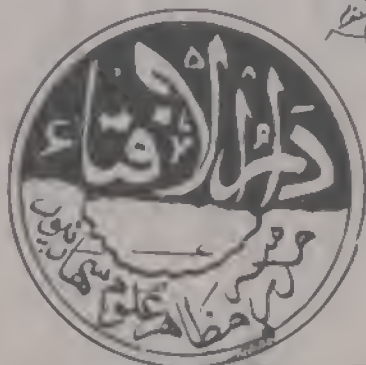 دارالافتاء
مدرسہ مظاہر علوم سہارنپور